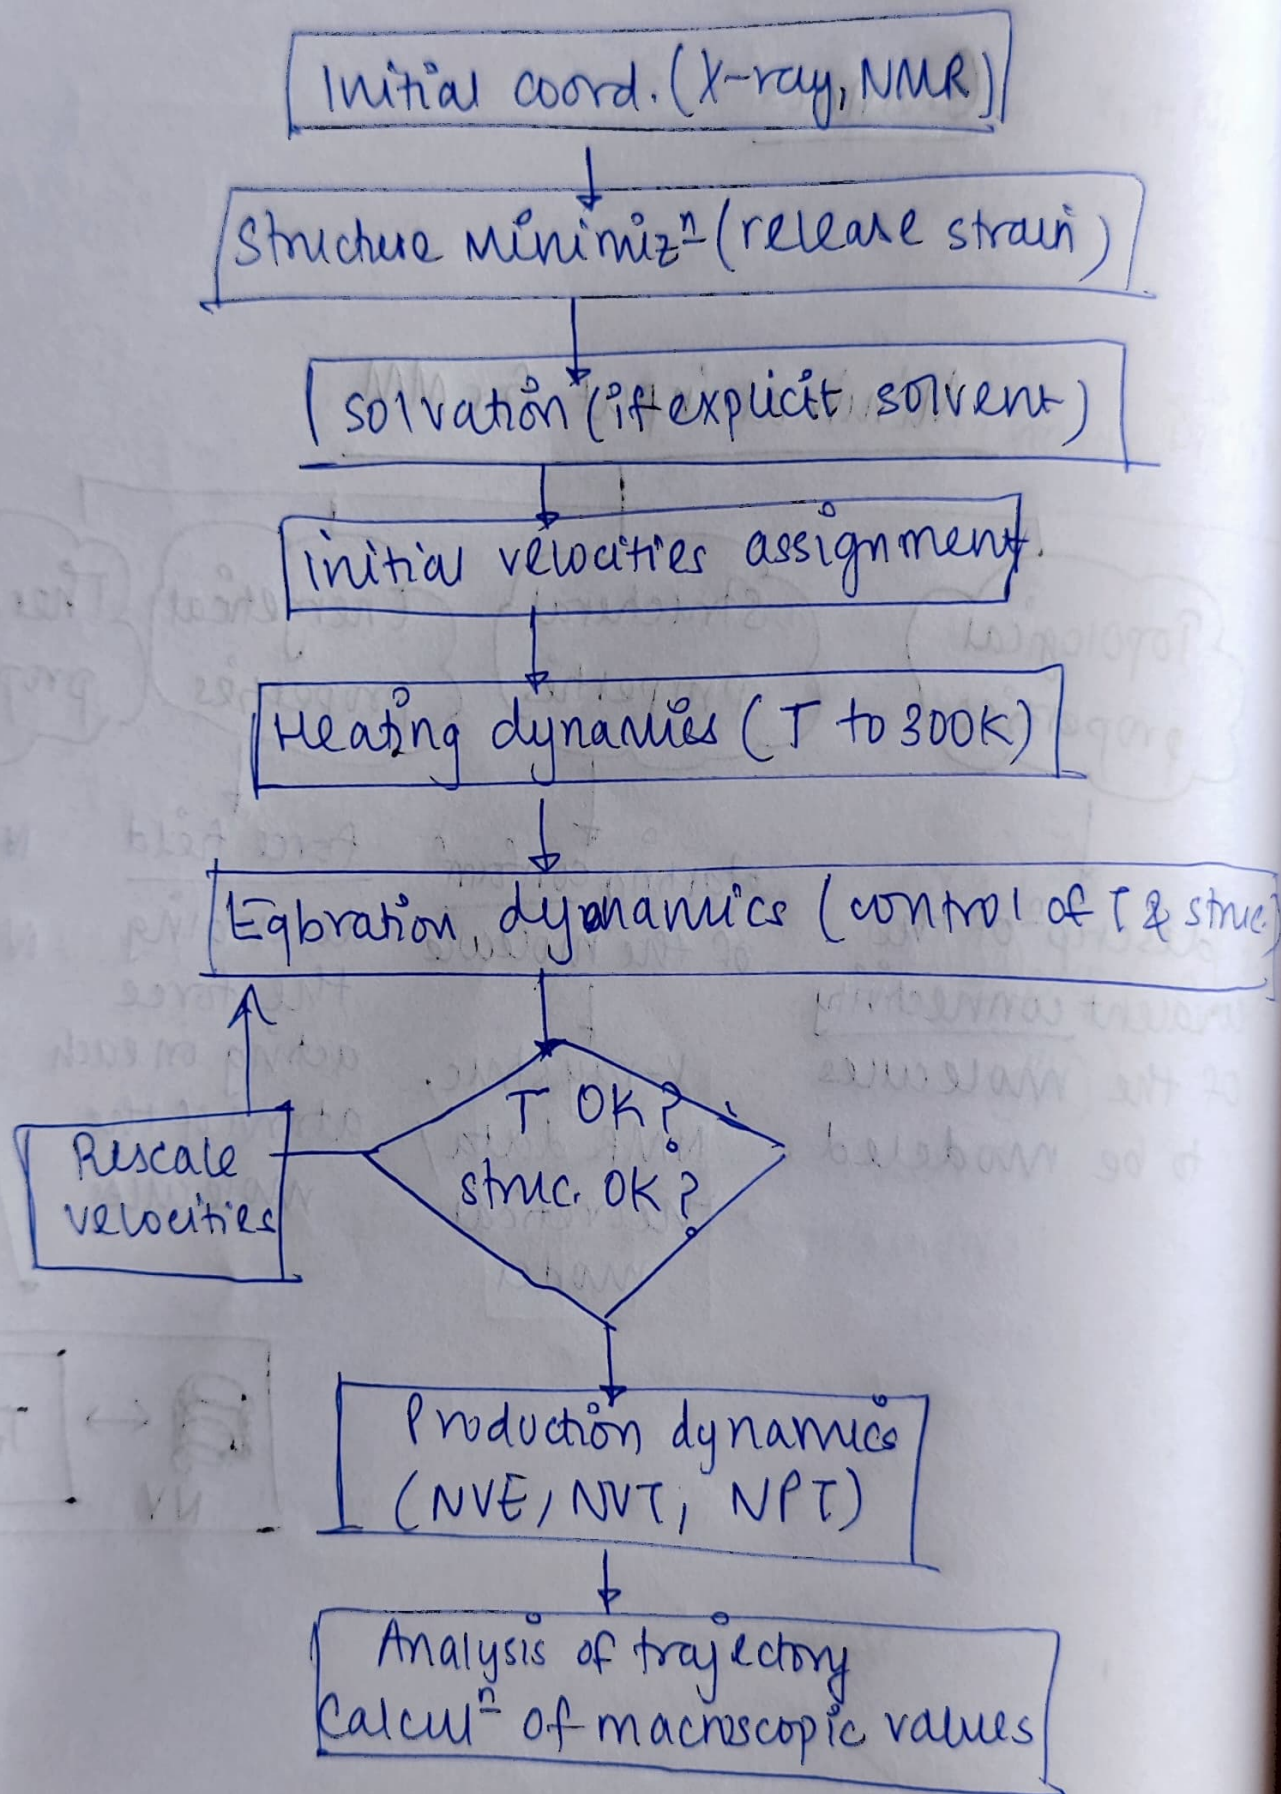 Initial coord. (X-ray, NMR)
Structure Minimizⁿ (release strain)
solvation (if explicit solvent)
initial velocities assignment.
Heating dynamics (T to 300K)
Eqbration dynamics (control of T & struc.)
T OK?
struc. OK?
Rescale
velocities
Production dynamics
(NVE, NVT, NPT)
Analysis of trajectory
Calculⁿ of macroscopic values